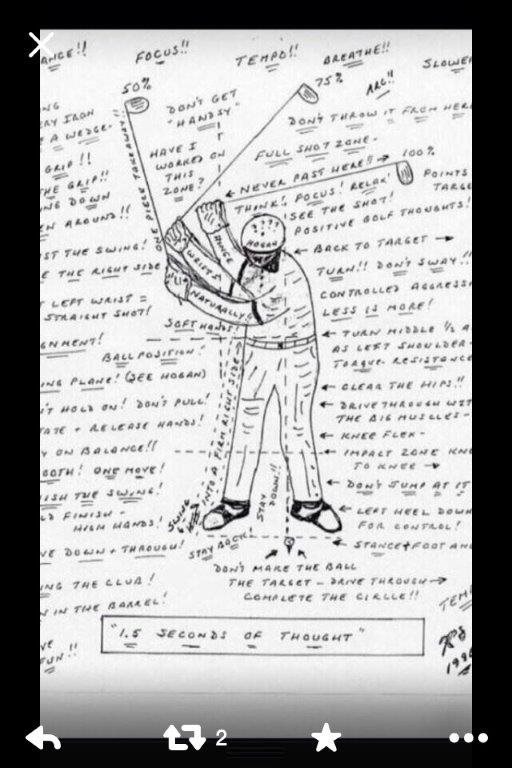 ANCE!!
FOCUS!!
TEMPO!!
BREATHE!!
SLOWER
50%
75%
ARC!!
DON'T GET
"HANDSY"
DON'T THROW IT FROM HERE
RY IRON
E A WEDGE-
HAVE I
WORKED ON
THIS
ZONE?
FULL SHOT ZONE-
100%
GRIP!!
THE GRIP!!
NG DOWN
EN AROUND!!
ONE PIECE TAKEAWAY!!
← NEVER PAST HERE!! →
THINK! FOCUS! RELAX!
SEE THE SHOT!
POSITIVE GOLF THOUGHTS!
POINTS
TARGE
????
HOGAN
HINGE
WRISTS
NATURALLY!!
ST THE SWING!
E THE RIGHT SIDE
LEFT WRIST =
STRAIGHT SHOT!
← BACK TO TARGET →
TURN!! DON'T SWAY!!
CONTROLLED AGGRESSI
LESS IS MORE!
SOFT HANDS!
GNMENT!
BALL POSITION!
← TURN MIDDLE 1/2 A
AS LEFT SHOULDER-
TORQUE- RESISTANCE
ING PLANE! (SEE HOGAN)
← CLEAR THE HIPS!!
N'T HOLD ON! DON'T PULL!
TATE + RELEASE HANDS!
← DRIVE THROUGH WIT
THE BIG MUSCLES-
← KNEE FLEX-
Y ON BALANCE!!
OOTH! ONE MOVE!
← IMPACT ZONE KNE
TO KNEE →
INTO A FIRM RIGHT SIDE
STAY DOWN!!
ISH THE SWING!
← DON'T JUMP AT IT
LD FINISH-
HIGH HANDS!
SWING
← LEFT HEEL DOWN
FOR CONTROL!
VE DOWN + THROUGH!
STAY BACK
← STANCE + FOOT AN
DON'T MAKE THE BALL
THE TARGET - DRIVE THROUGH →
COMPLETE THE CIRCLE!!
ING THE CLUB!
N IN THE BARREL!
TEM
"1.5 SECONDS OF THOUGHT"
VE
FUN!!
2